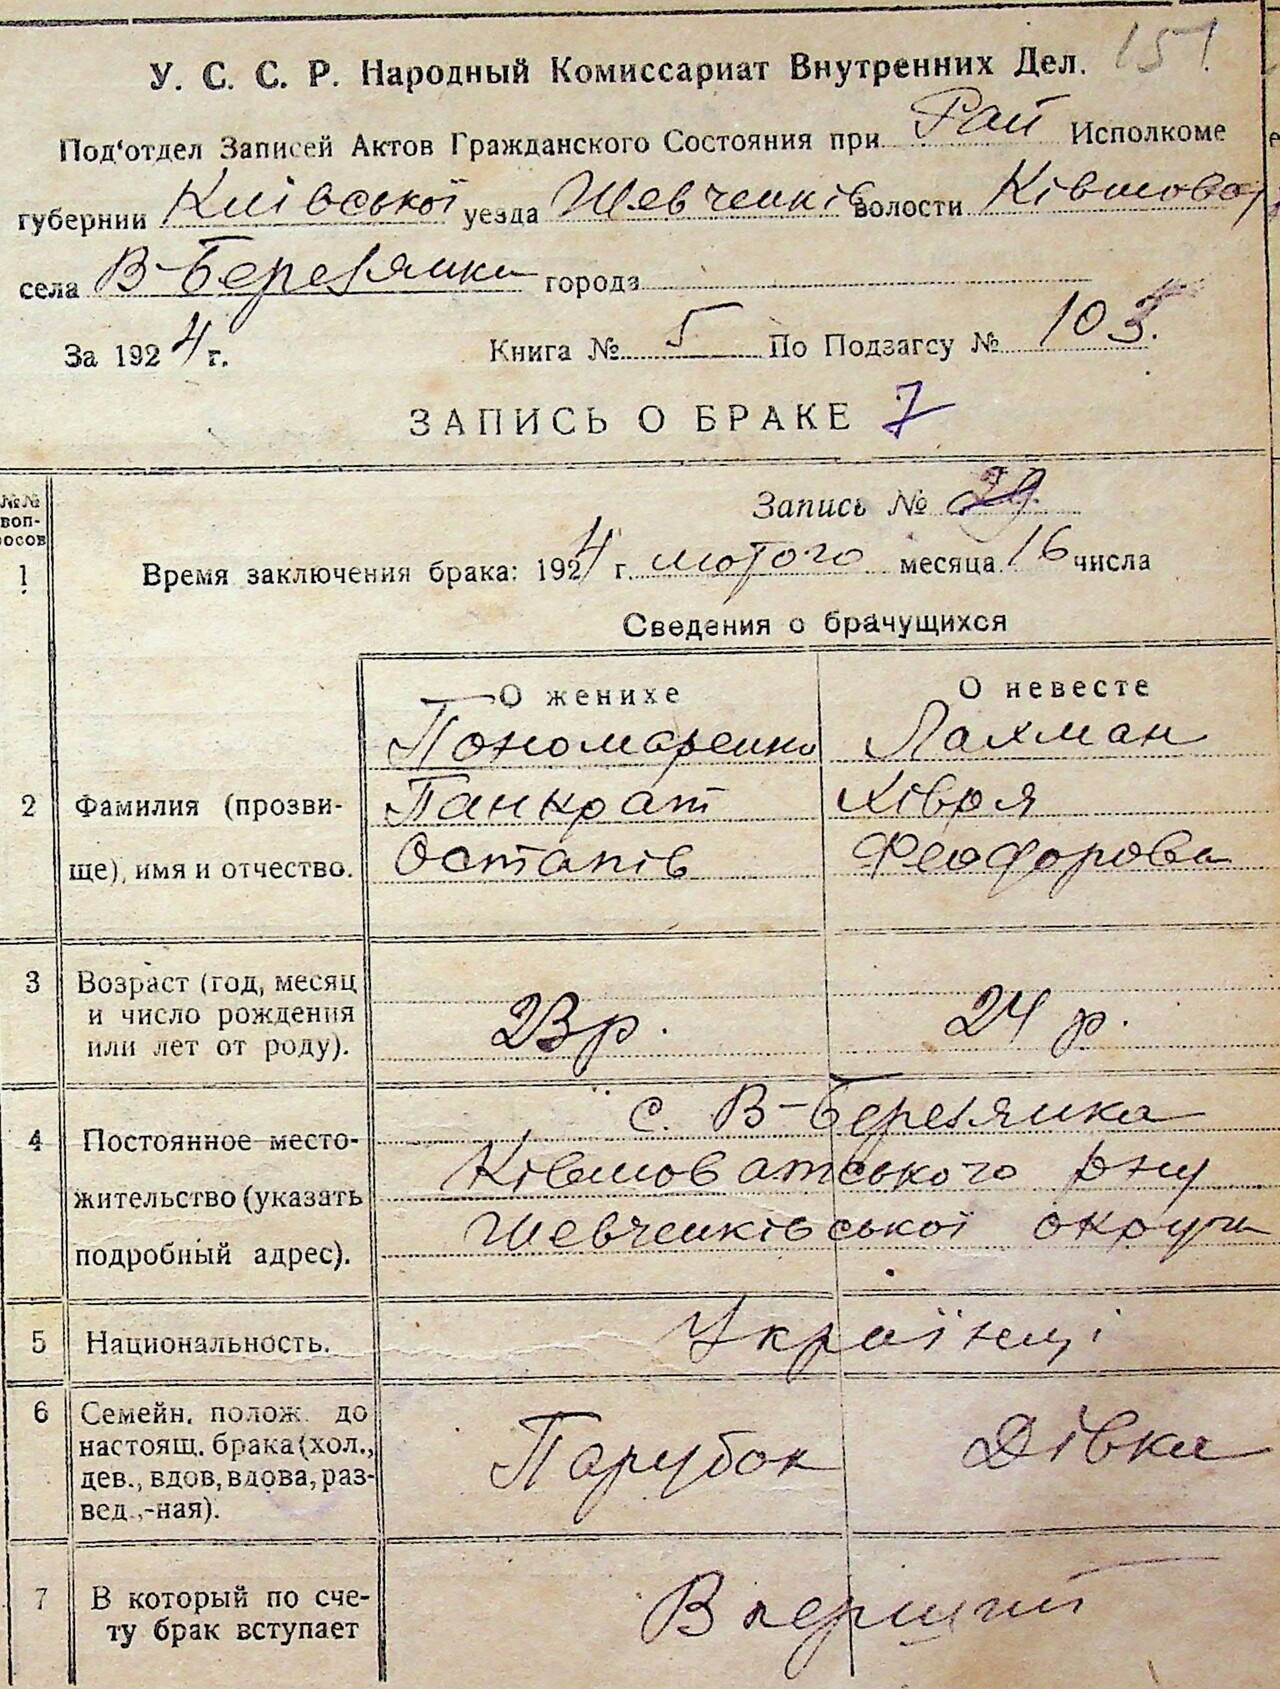 151
У. С. С. Р. Народный Комиссариат Внутренних Дел.
Под‘отдел Записей Актов Гражданского Состояния при Рай Исполкоме
губернии Київської уезда Шевченків волости Ківшова
села В-Березянка города
За 1924 г. Книга № 5 По Подзагсу № 105.
ЗАПИСЬ О БРАКЕ 7
№№ воп-росов
Запись № 29
1 Время заключения брака: 1924 г. лютого месяца 16 числа
Сведения о брачущихся
О женихе О невесте
Пономаренко Лахман
2 Фамилия (прозви- Панкрат Хівря
ще), имя и отчество. Остапів Феодорова
3 Возраст (год, месяц
и число рождения 23 р. 24 р.
или лет от роду).
с. В-Березянка
4 Постоянное место- Ківшоватського р-ну
жительство (указать Шевченківської округи
подробный адрес).
5 Национальность. Українці
6 Семейн. полож. до
настоящ. брака (хол., Парубок Дівка
дев., вдов, вдова, раз-
вед.,-ная).
7 В который по сче- Вперший
ту брак вступает